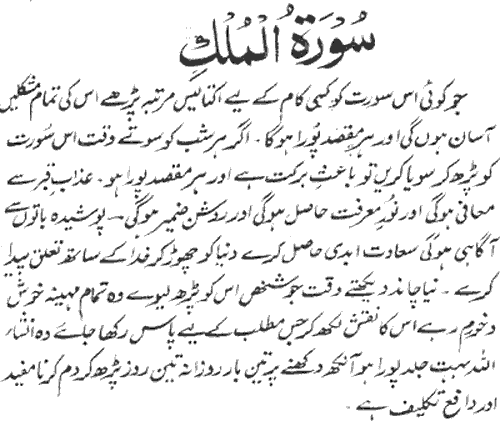 سُوْرَةُ الْمُلْكِ
جو کوئی اس سورت کو کسی کام کے لیے اکتالیس مرتبہ پڑھے اس کی تمام مشکلیں
آسان ہوں گی اور ہر مقصد پورا ہوگا۔ اگر ہر شب کو سوتے وقت اس سورت
کو پڑھ کر سویا کریں تو باعثِ برکت ہے اور ہر مقصد پورا ہو۔ عذاب قبر سے
معافی ہوگی اور نورِ معرفت حاصل ہوگی اور روشن ضمیر ہوگی۔ پوشیدہ باتوں سے
آگاہی ہوگی سعادت ابدی حاصل کرے دنیا کو چھوڑ کر خدا کے ساتھ تعلق پیدا
کرے۔ نیا چاند دیکھتے وقت جو شخص اس کو پڑھ لیوے وہ تمام مہینہ خوش
و خرم رہے اس کا نقش لکھ کر جس مطلب کے لیے پاس رکھا جائے وہ انشاء
اللہ بہت جلد پورا ہو آنکھ دکھنے پر تین بار روزانہ تین روز پڑھ کر دم کرنا مفید
اور دافع تکلیف ہے۔